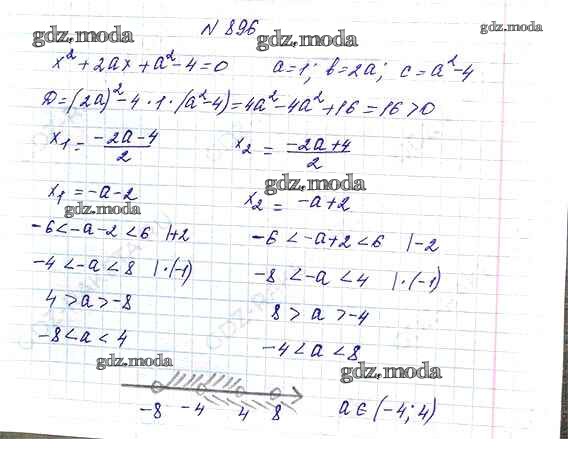 N 896
gdz.moda gdz.moda gdz.moda
x² + 2ax + a² - 4 = 0 a = 1; b = 2a; c = a² - 4
D = (2a)² - 4 · 1 · (a² - 4) = 4a² - 4a² + 16 = 16 > 0
x₁ = (-2a - 4)/2 x₂ = (-2a + 4)/2
gdz.moda
x₁ = -a - 2 x₂ = -a + 2
gdz.moda
-6 < -a - 2 < 6 | + 2 -6 < -a + 2 < 6 | - 2
-4 < -a < 8 | · (-1) -8 < -a < 4 | · (-1)
4 > a > -8 8 > a > -4
-8 < a < 4 -4 < a < 8
gdz.moda gdz.moda
-8 -4 4 8 a ∈ (-4; 4)
gdz.moda gdz.moda